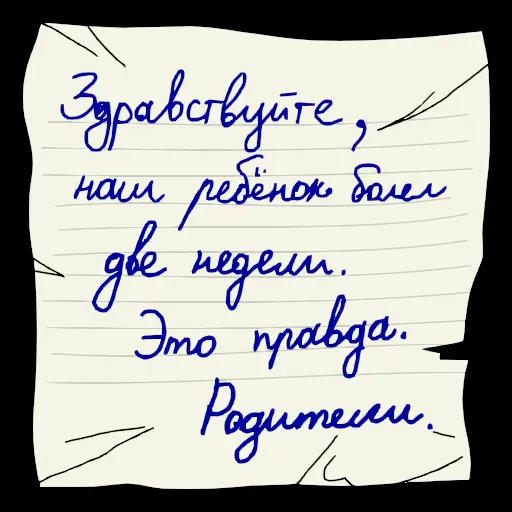 Здравствуйте,
наш ребёнок болел
две недели.
Это правда.
Родители.